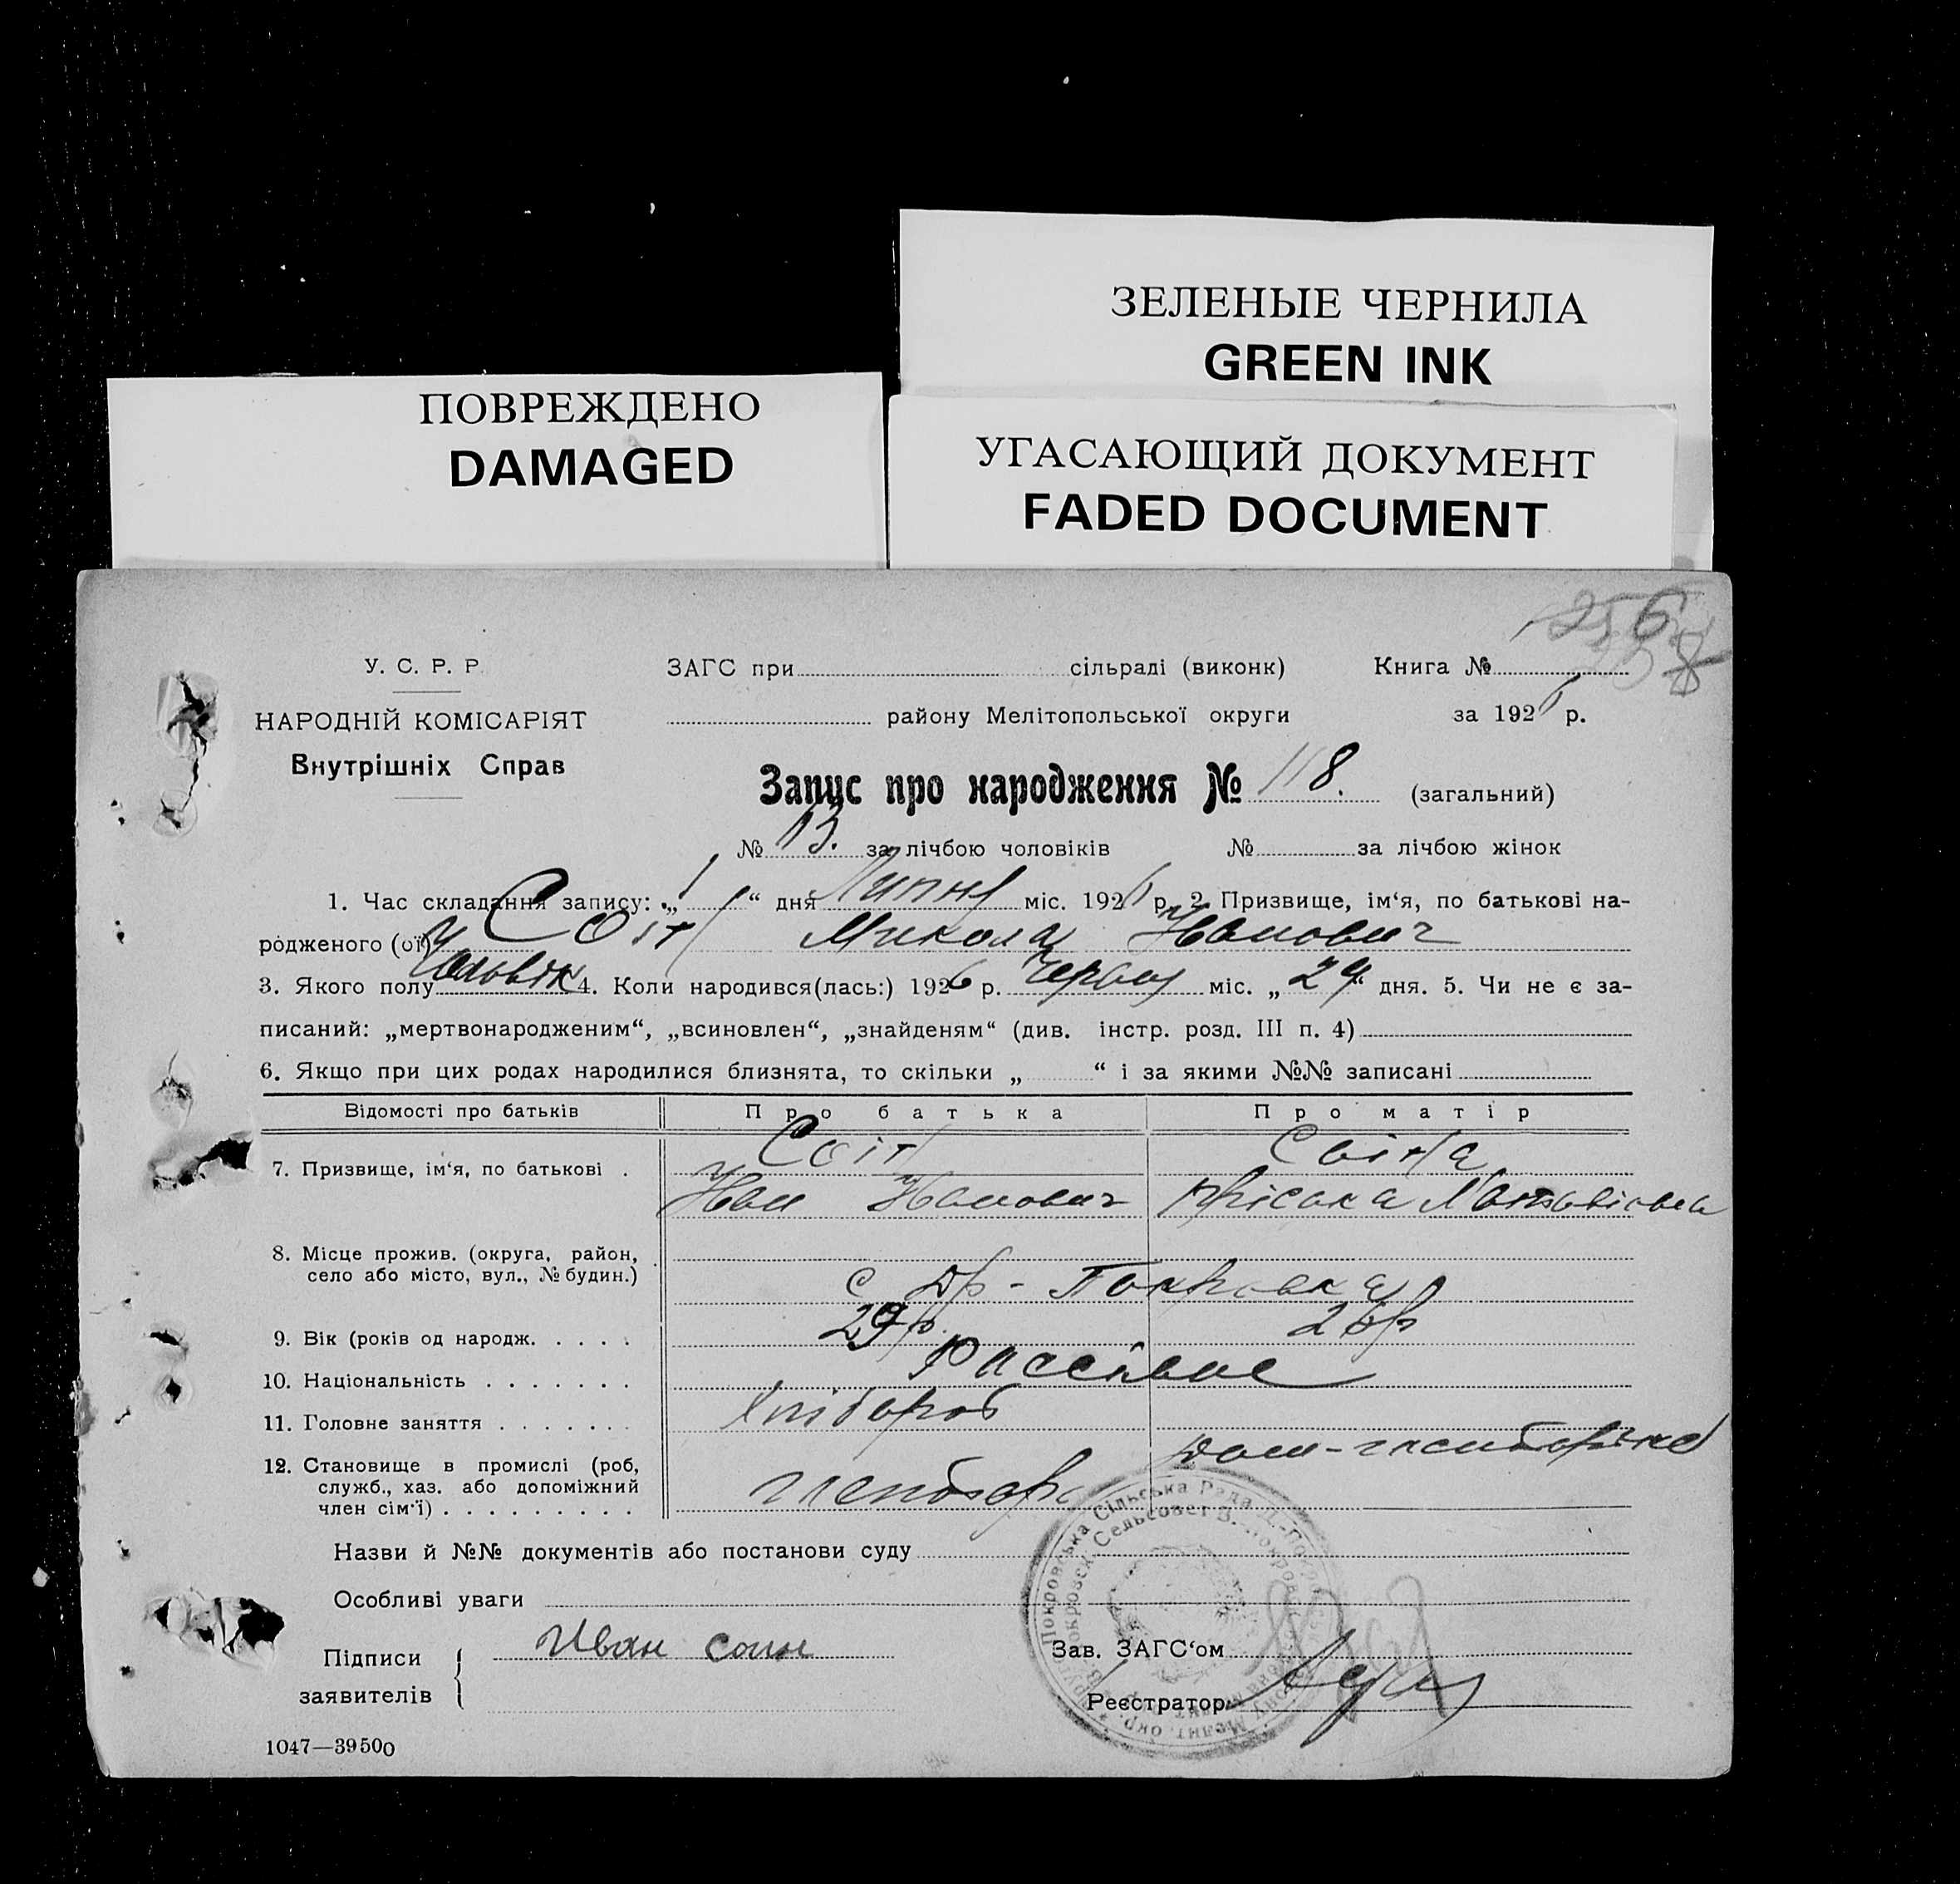 ЗЕЛЕНЫЕ ЧЕРНИЛА
GREEN INK
ПОВРЕЖДЕНО
DAMAGED
УГАСАЮЩИЙ ДОКУМЕНТ
FADED DOCUMENT
256
У. С. Р. Р.
ЗАГС при сільраді (виконк) Книга №
НАРОДНІЙ КОМІСАРІЯТ
району Мелітопольської округи за 1926 р.
Внутрішніх Справ
Запис про народження № 118. (загальний)
№ 13. за лічбою чоловіків № за лічбою жінок
1. Час складання запису: „1“ дня Липня міс. 1926 р. 2. Призвище, ім‘я, по батькові на-
родженого (ої) Соін Микола Иванович
3. Якого полу Чоловік 4. Коли народився(лась:) 1926 р. Червня міс. „29“ дня. 5. Чи не є за-
писаний: „мертвонародженим“, „всиновлен“, „знайденям“ (див. інстр. розд. III п. 4)
6. Якщо при цих родах народилися близнята, то скільки „ “ і за якими №№ записані
Відомості про батьків Про батька Про матір
Соін Соіна
7. Призвище, ім‘я, по батькові .
Иван Иванович
8. Місце прожив. (округа, район,
село або місто, вул., № будин.)
с Др-Покровка
9. Вік (років од народж. . . . . 29 р. 26 р
10. Національність . . . . . . .
11. Головне заняття . . . . . . . Хлібороб
12. Становище в промислі (роб,
служб., хаз. або допоміжний
член сім‘ї) . . . . . . . . .
Назви й №№ документів або постанови суду
Особливі уваги
Підписи
заявителів
Иван соин
Зав. ЗАГС‘ом
Реєстратор
Покровська Сільська Рада
1047—39500